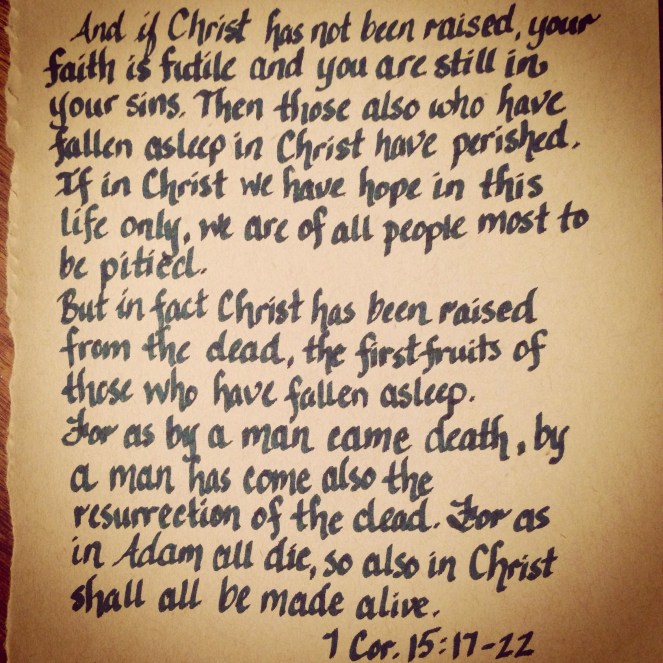 And if Christ has not been raised, your
faith is futile and you are still in
your sins. Then those also who have
fallen asleep in Christ have perished.
If in Christ we have hope in this
life only, we are of all people most to
be pitied.
But in fact Christ has been raised
from the dead, the firstfruits of
those who have fallen asleep.
For as by a man came death, by
a man has come also the
resurrection of the dead. For as
in Adam all die, so also in Christ
shall all be made alive.
1 Cor. 15:17-22